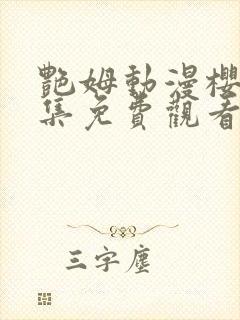 艷姆動漫櫻
集免費觀看
三字塵